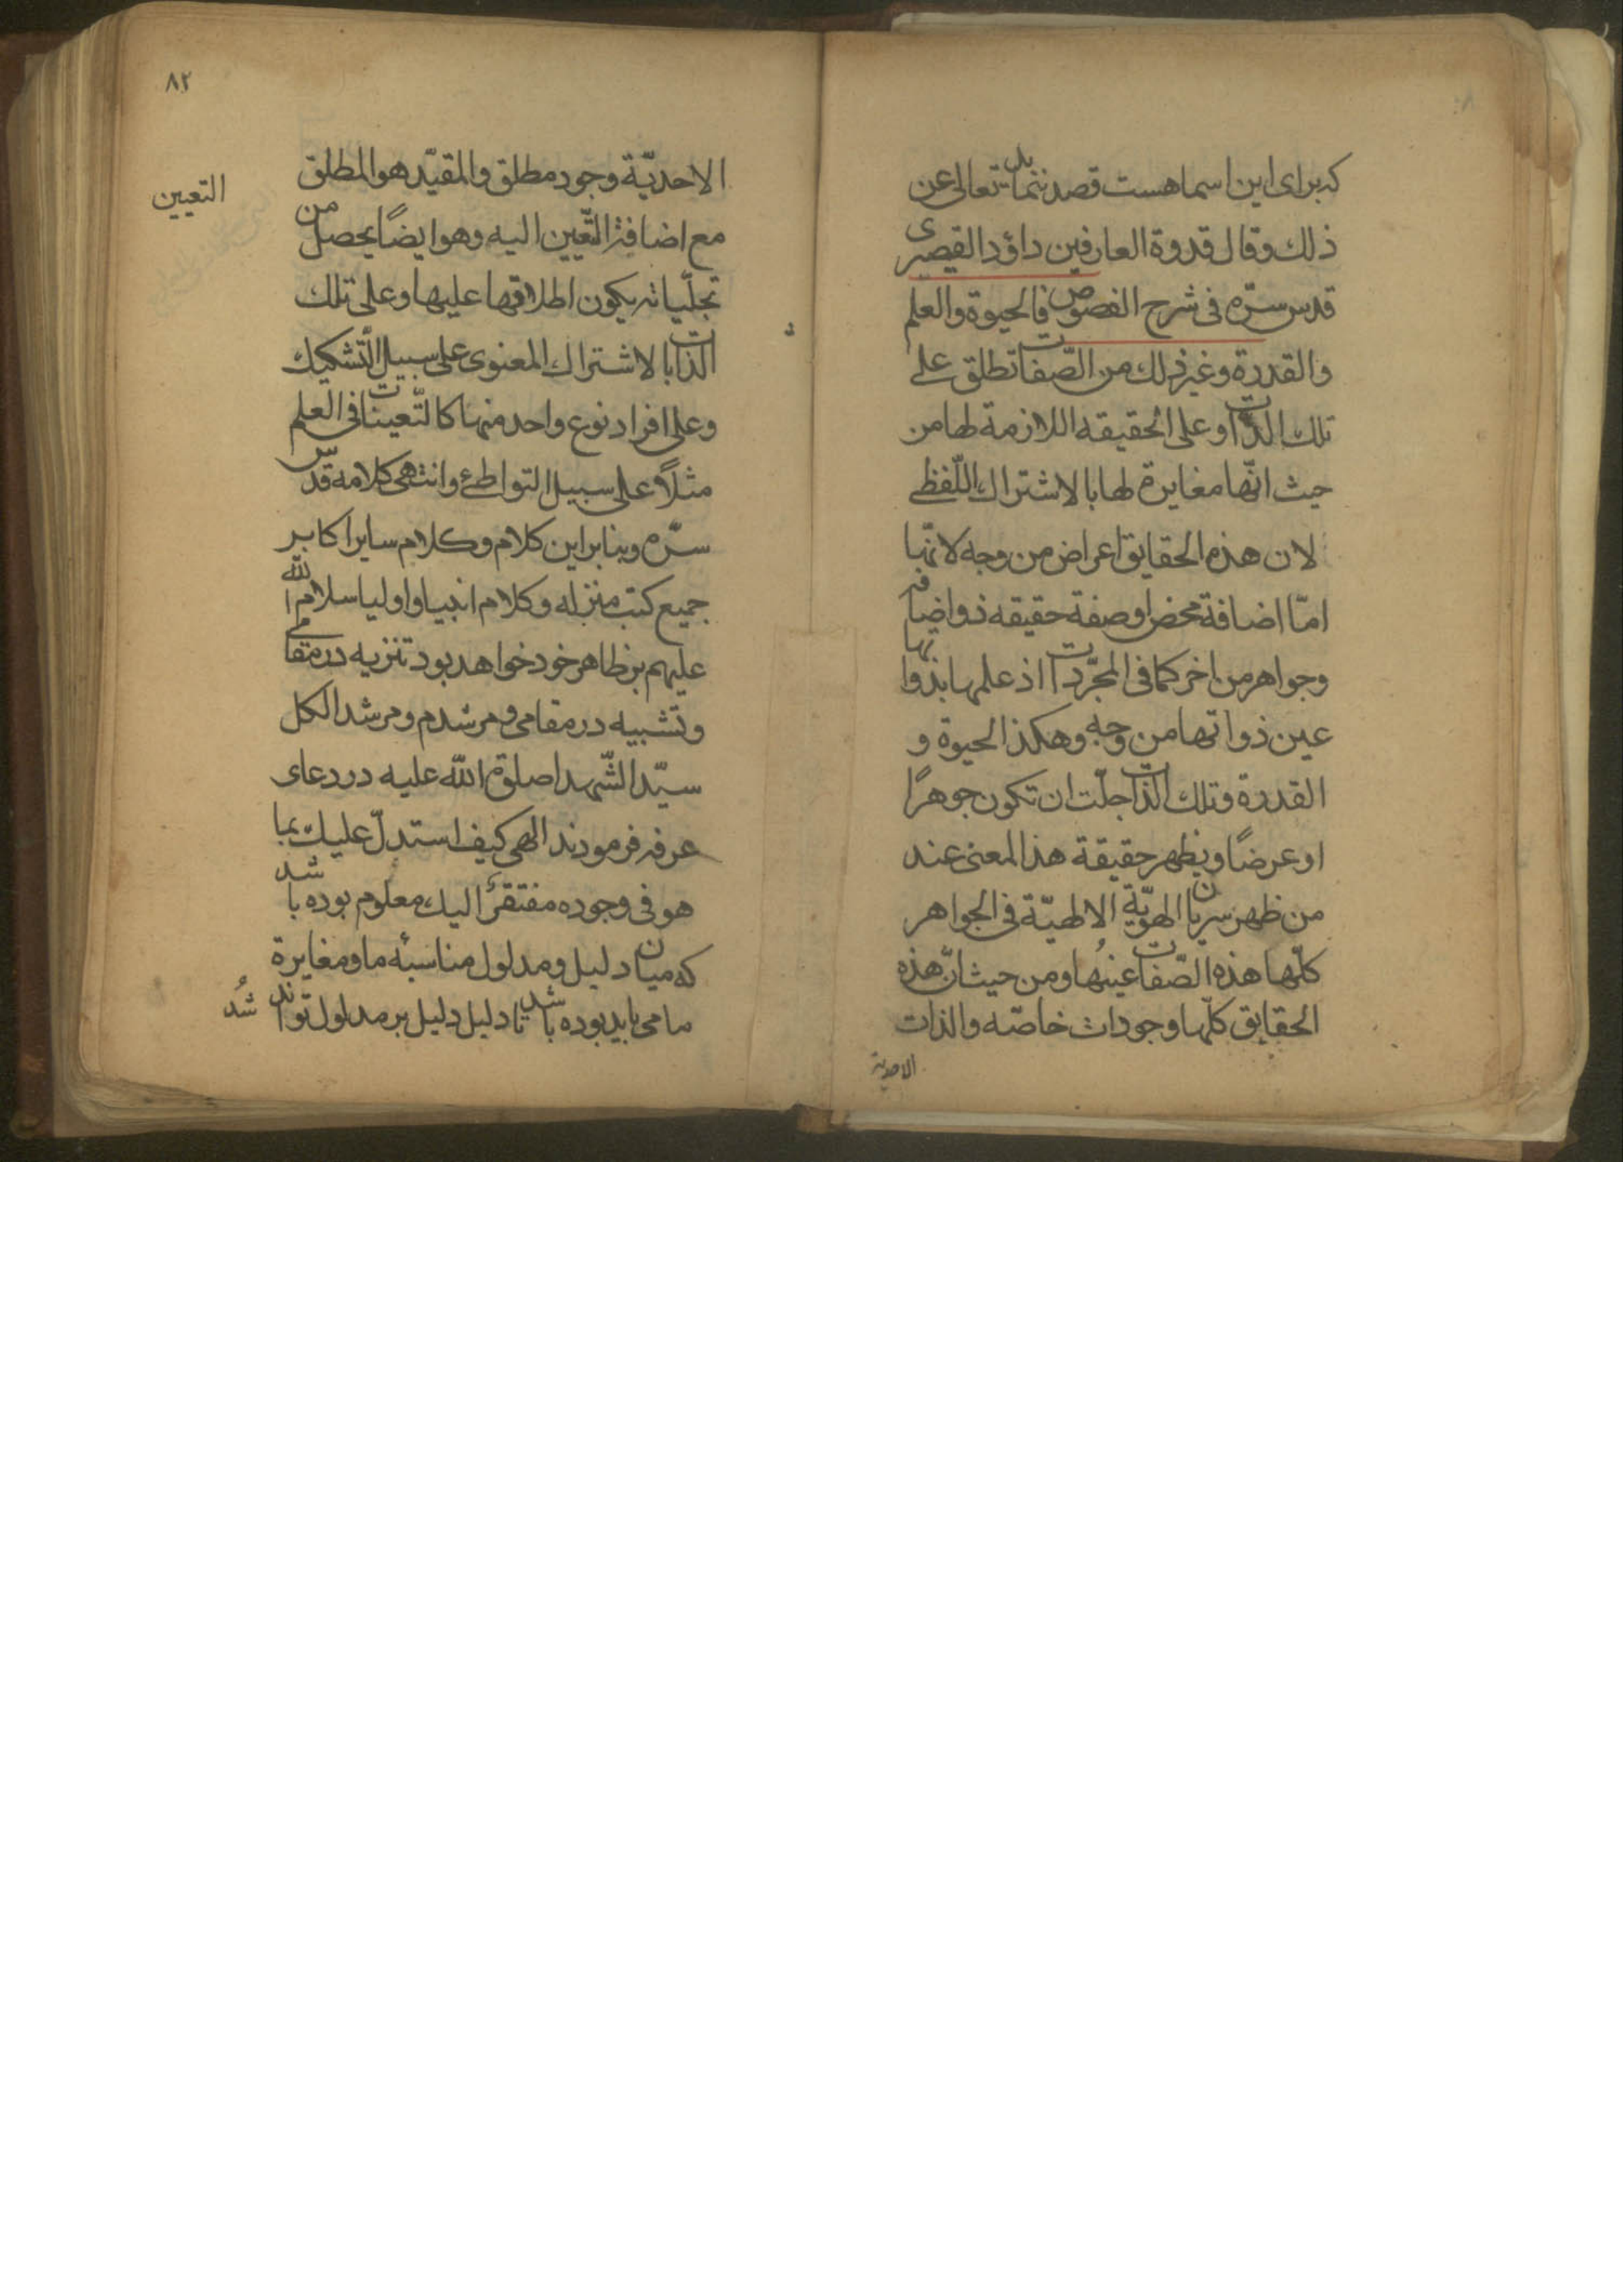 که برای این اسما هست قصد ننمایل یتعالی عن
ذلک وقال قدوة العارفین داؤد القیصری
قدس سرّه فی شرح الفصوص فالحیوة والعلم
والقدرة وغیر ذلک من الصّفات تطلق علی
تلک الذّات وعلی الحقیقه اللازمة لها من
حیث انّها مغایرة لها بالاشتراک اللّفظی
لان هذه الحقایق اعراض من وجه لانّها
امّا اضافة محض او صفة حقیقه ذو اضافه
وجواهر من اخر کما فی المجرّدات اذ علمها بذواتها
عین ذواتها من وجه وهکذا الحیوة و
القدرة وتلک الذّات جلّت ان تکون جوهرًا
او عرضًا ویظهر حقیقة هذا المعنی عند
من ظهر سریان الهویّة الالهیّة فی الجواهر
کلّها هذه الصّفات عینُها ومن حیث انّ هذه
الحقایق کلّها وجودات خاصّه والذات
الاحدیة
۸۲
الاحدیّة وجود مطلق والمقیّد هو المطلق
التعیین
مع اضافة التّعیین الیه وهو ایضًا یحصل من
تجلّیاته یکون اطلاقها علیها وعلی تلک
الذّات بالاشتراک المعنوی علی سبیل التّشکیک
وعلی افراد نوع واحد منها کالتّعینات فی العلم
مثلاً علی سبیل التواطئ وانتهی کلامه قدس
سرّه وبنابراین کلام وکلام سایر اکابر
جمیع کتب منزله وکلام انبیا واولیا سلام الله
علیهم بر ظاهر خود خواهد بود تنزیه در مقامی
وتشبیه در مقامی ومرشدم ومرشد الکل
سیّد الشّهدا صلوة الله علیه در دعای
عرفه فرمودند الهی کیف استدلّ علیک بما
هو فی وجوده مفتقرٌ الیک معلوم بوده باشد
که میان دلیل ومدلول مناسبة ما ومغایرة
ما می باید بوده باشد تا دلیل دلیل بر مدلول تواند شُد